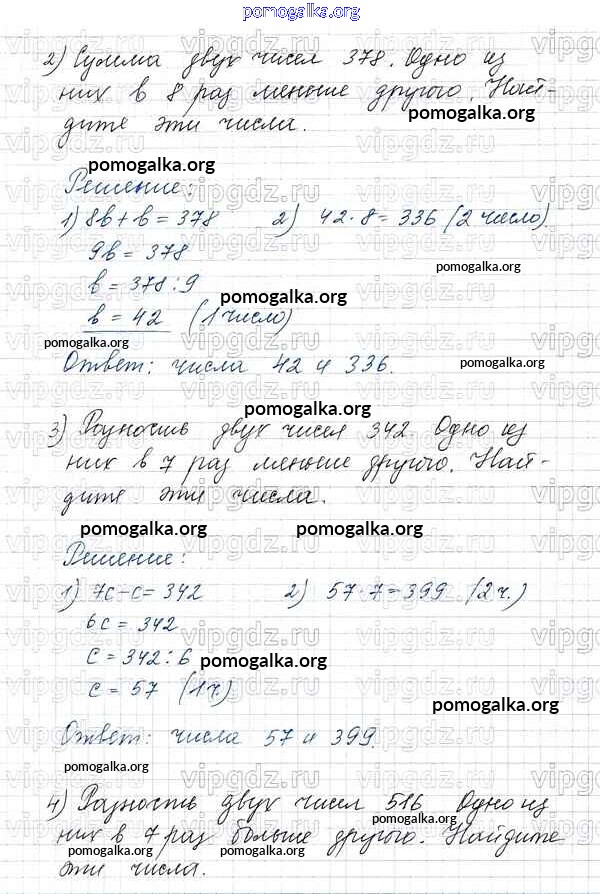 pomogalka.org
2) Сумма двух чисел 378. Одно из
них в 8 раз меньше другого. Най-
дите эти числа.
pomogalka.org
Решение:
1) 8b + b = 378 2) 42·8 = 336 (2 число)
9b = 378
pomogalka.org
b = 378 : 9
pomogalka.org
b = 42 (1 число)
pomogalka.org
Ответ: числа 42 и 336.
pomogalka.org
pomogalka.org
3) Разность двух чисел 342 Одно из
них в 7 раз меньше другого. Най-
дите эти числа.
pomogalka.org pomogalka.org
Решение:
1) 7c - c = 342 2) 57·7 = 399 (2 ч.)
6c = 342
c = 342 : 6 pomogalka.org
c = 57 (1 ч.)
pomogalka.org
Ответ: числа 57 и 399.
pomogalka.org
4) Разность двух чисел 516 Одно из
них в 7 раз больше другого. Найдите
pomogalka.org pomogalka.org pomogalka.org
эти числа.